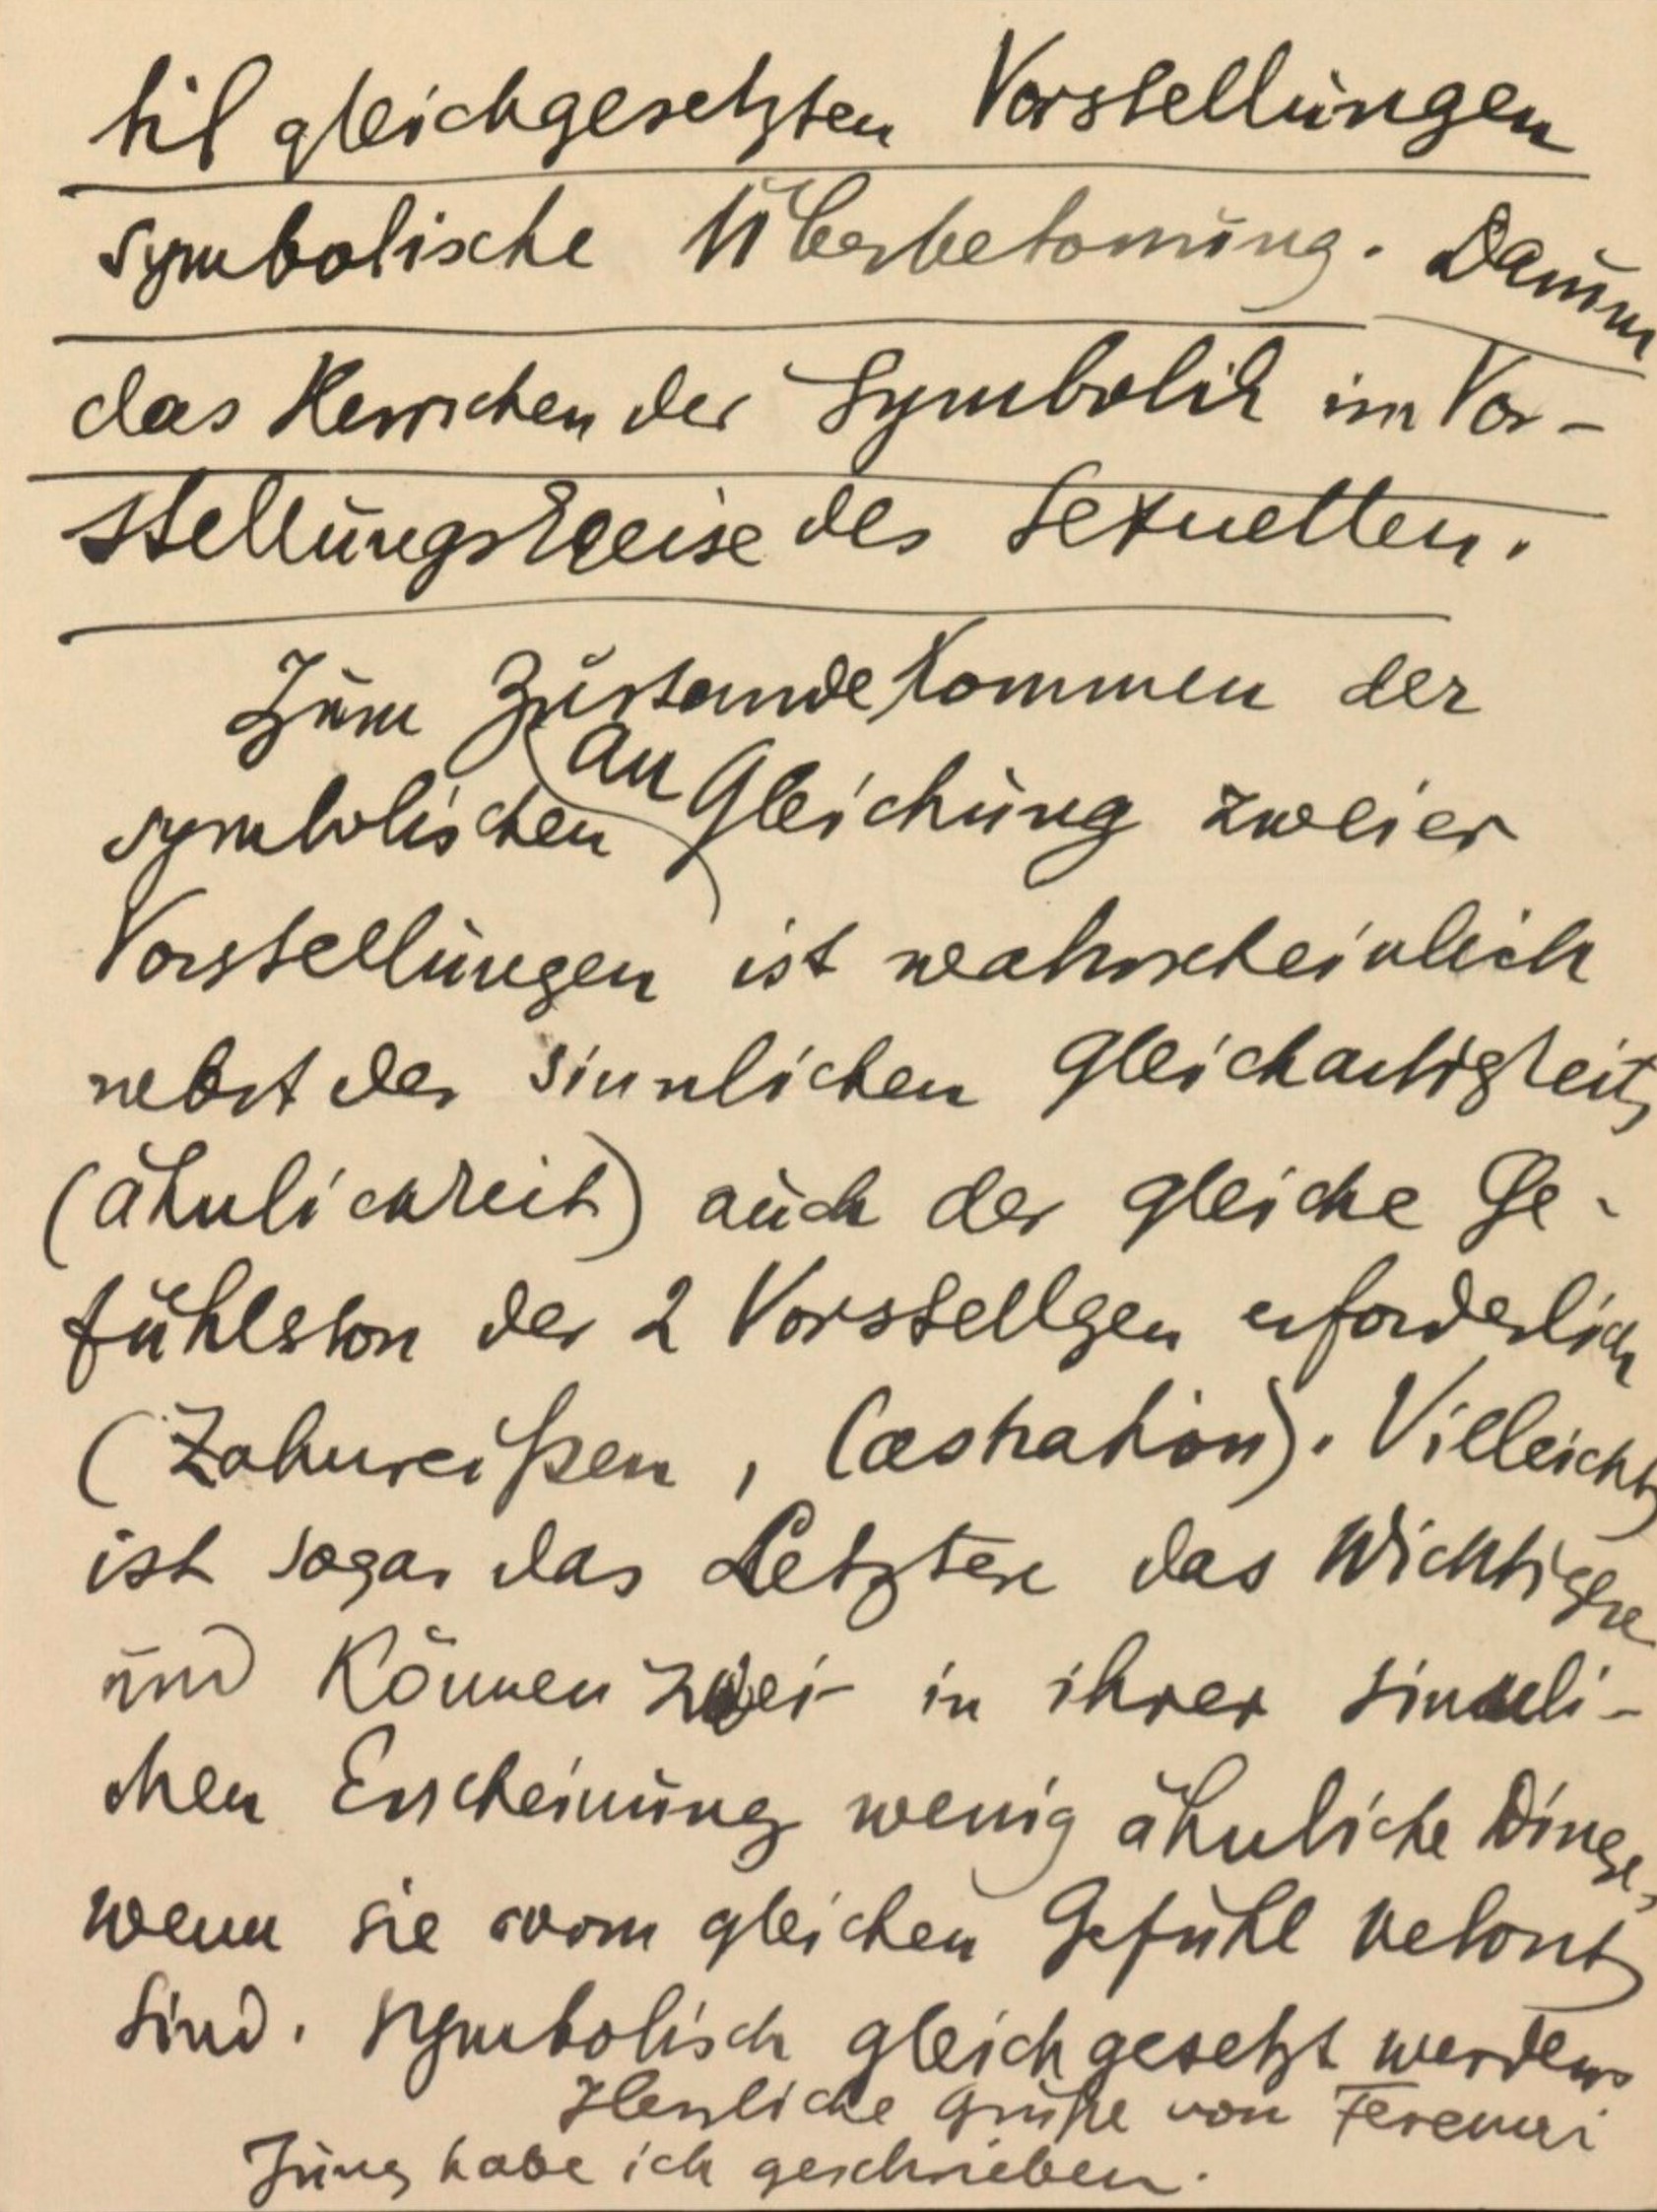 til gleichgesetzten Vorstellungen
symbolische Überbetonung. Darum
das Herrschen der Symbolik im Vor-
stellungskreise des Sexuellen.
Zum Zustandekommen der
symbolischen Angleichung zweier
Vorstellungen ist wahrscheinlich
nebst der sinnlichen Gleichartigkeit
(ähnlichkeit) auch der gleiche Ge-
fühlston der 2 Vorstellgen erforderlich
(Zahnreißen, Castration). Villeicht
ist sogar das Letztere das Wichtigere
und können zwei in ihrer sinnli-
chen Erscheinung wenig ähnliche Dinge,
wenn sie vom gleichen Gefühl betont
sind. symbolisch gleichgesetzt werden.
Herzliche Grüße von Ferenczi
Jung habe ich geschrieben.